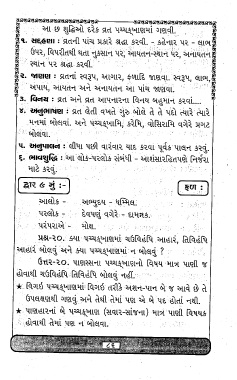 આ છ શુદ્ધિઓ દરેક વ્રત પચ્ચક્ખાણમાં ગણવી.
૧. સદ્દહણા : વ્રતની પાંચ પ્રકારે શ્રદ્ધા કરવી. - કહેનાર પર - લાભ
ઉપર, વિપરીતથી થતા નુકસાન પર, આયતન-સ્થાન પર, અનાયતન
સ્થાન પર શ્રદ્ધા કરવી.
૨. જાણણ : વ્રતનાં સ્વરૂપ, આગાર, ફળાદિ જાણવા. સ્વરૂપ, લાભ,
અપાય, આયતન અને અનાયતન આ પાંચ જાણવા.
૩. વિનય : વ્રત અને વ્રત આપનારના વિનય બહુમાન કરવાં....
૪. અનુભાષણ : વ્રત લેતી વખતે ગુરુ બોલે તે તે પદો ત્યારે ત્યારે
મનમાં બોલવાં. અને પચ્ચક્ખામિ, કરેમિ, વોસિરામિ વગેરે પ્રગટ
બોલવા.
૫. અનુપાલન : લીધા પછી વારંવાર યાદ કરવા પૂર્વક પાલન કરવું.
૬. ભાવશુદ્ધિ : આ લોક-પરલોક સંબંધી - આશંસારહિતપણે નિર્જરા
માટે કરવું.
દ્વાર ૯ મું :- ફળ :
આલોક - અભ્યુદય - ધમ્મિલ.
પરલોક - દેવપણું વગેરે - દામન્નક.
પરંપરાએ - મોક્ષ.
પ્રશ્ન-૨૦. ક્યા પચ્ચક્ખાણમાં ચઉવિહંપિ આહારં, તિવિહંપિ
આહારં બોલવું અને ક્યા પચ્ચક્ખાણમાં ન બોલવું ?
ઉત્તર-૨૦. પાણસ્સના પચ્ચક્ખાણનો વિષય માત્ર પાણી જ
હોવાથી ચઉવિહંપિ તિવિહંપિ બોલવું નહીં.
★ વિગઈ પચ્ચક્ખાણમાં વિગઈ તરીકે અશન-પાન બે જ આવે છે તે
ઉપલક્ષણથી ગણવું અને તેથી તેમાં પણ એ બે પદ હોતાં નથી.
★ પાણહારનાં બે પચ્ચક્ખાણ (સવાર-સાંજના) માત્ર પાણી વિષયક
હોવાથી તેમાં પણ ન બોલવા.